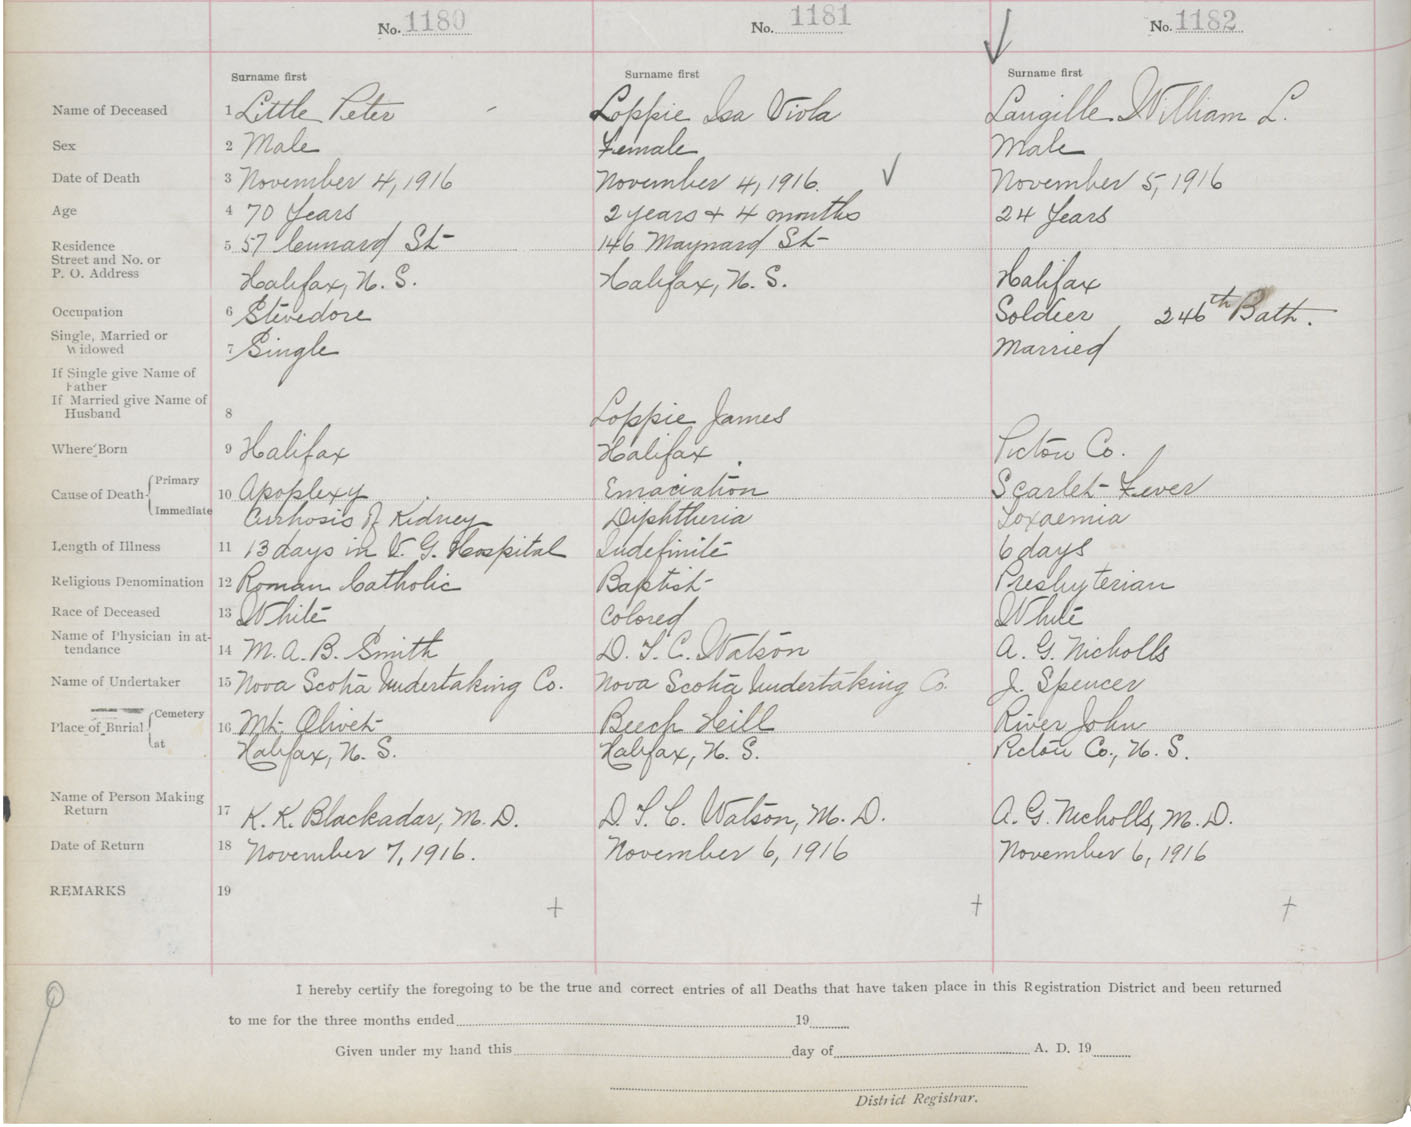 No. 1180 No. 1181 No. 1182
Surname first Surname first Surname first
Name of Deceased 1 Little Peter Loppie Isa Viola Langille William L.
Sex 2 Male Female Male
Date of Death 3 November 4, 1916 November 4, 1916. November 5, 1916
Age 4 70 Years 2 years + 4 months 24 Years
Residence 5 57 Cunnard St 146 Maynard St
Street and No. or
P. O. Address Halifax, N. S. Halifax, N. S. Halifax
Occupation 6 Stevedore Soldier 246th Bath.
Single, Married or
Widowed 7 Single Married
If Single give Name of
Father
If Married give Name of
Husband 8 Loppie James
Where Born 9 Halifax Halifax. Pictou Co.
Cause of Death Primary 10 Apoplexy Emaciation Scarlet Fever
Immediate Cirrhosis of Kidney Diphtheria Toxaemia
Length of Illness 11 13 days in V. G. Hospital Indefinite 6 days
Religious Denomination 12 Roman Catholic Baptist Presbyterian
Race of Deceased 13 White Colored White
Name of Physician in at-
tendance 14 M. A. B. Smith D. T. C. Watson A. G. Nicholls
Name of Undertaker 15 Nova Scotia Undertaking Co. Nova Scotia Undertaking Co. J. Spencer
Place of Burial Cemetery 16 Mt. Olivet Beech Heill River John
at Halifax, N. S. Halifax, N. S. Pictou Co., N. S.
Name of Person Making
Return 17 K. K. Blackadar, M. D. D. T. C. Watson, M. D. A. G. Nicholls, M. D.
Date of Return 18 November 7, 1916. November 6, 1916 November 6, 1916
REMARKS 19
I hereby certify the foregoing to be the true and correct entries of all Deaths that have taken place in this Registration District and been returned
to me for the three months ended 19
Given under my hand this day of A. D. 19
District Registrar.